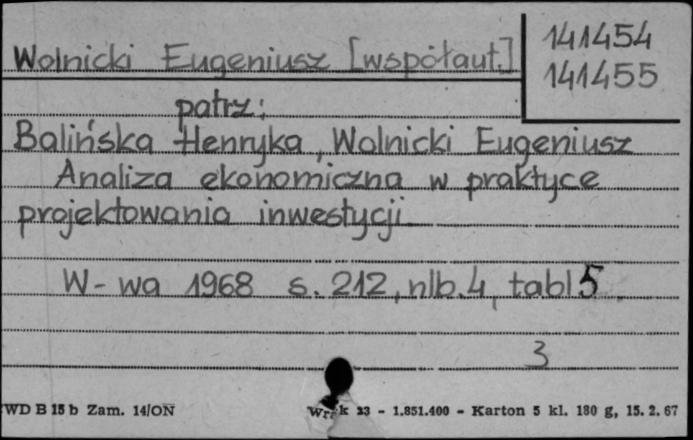 Wolnicki Eugeniusz [współaut.]
141454
141455
patrz:
Balińska Henryka, Wolnicki Eugeniusz
Analiza ekonomiczna w praktyce
projektowania inwestycji
W-wa 1968 s. 212, nlb. 4, tabl 5.
3
WD B 15 b Zam. 14/ON
23 - 1.851.400 - Karton 5 kl. 180 g, 15. 2. 67